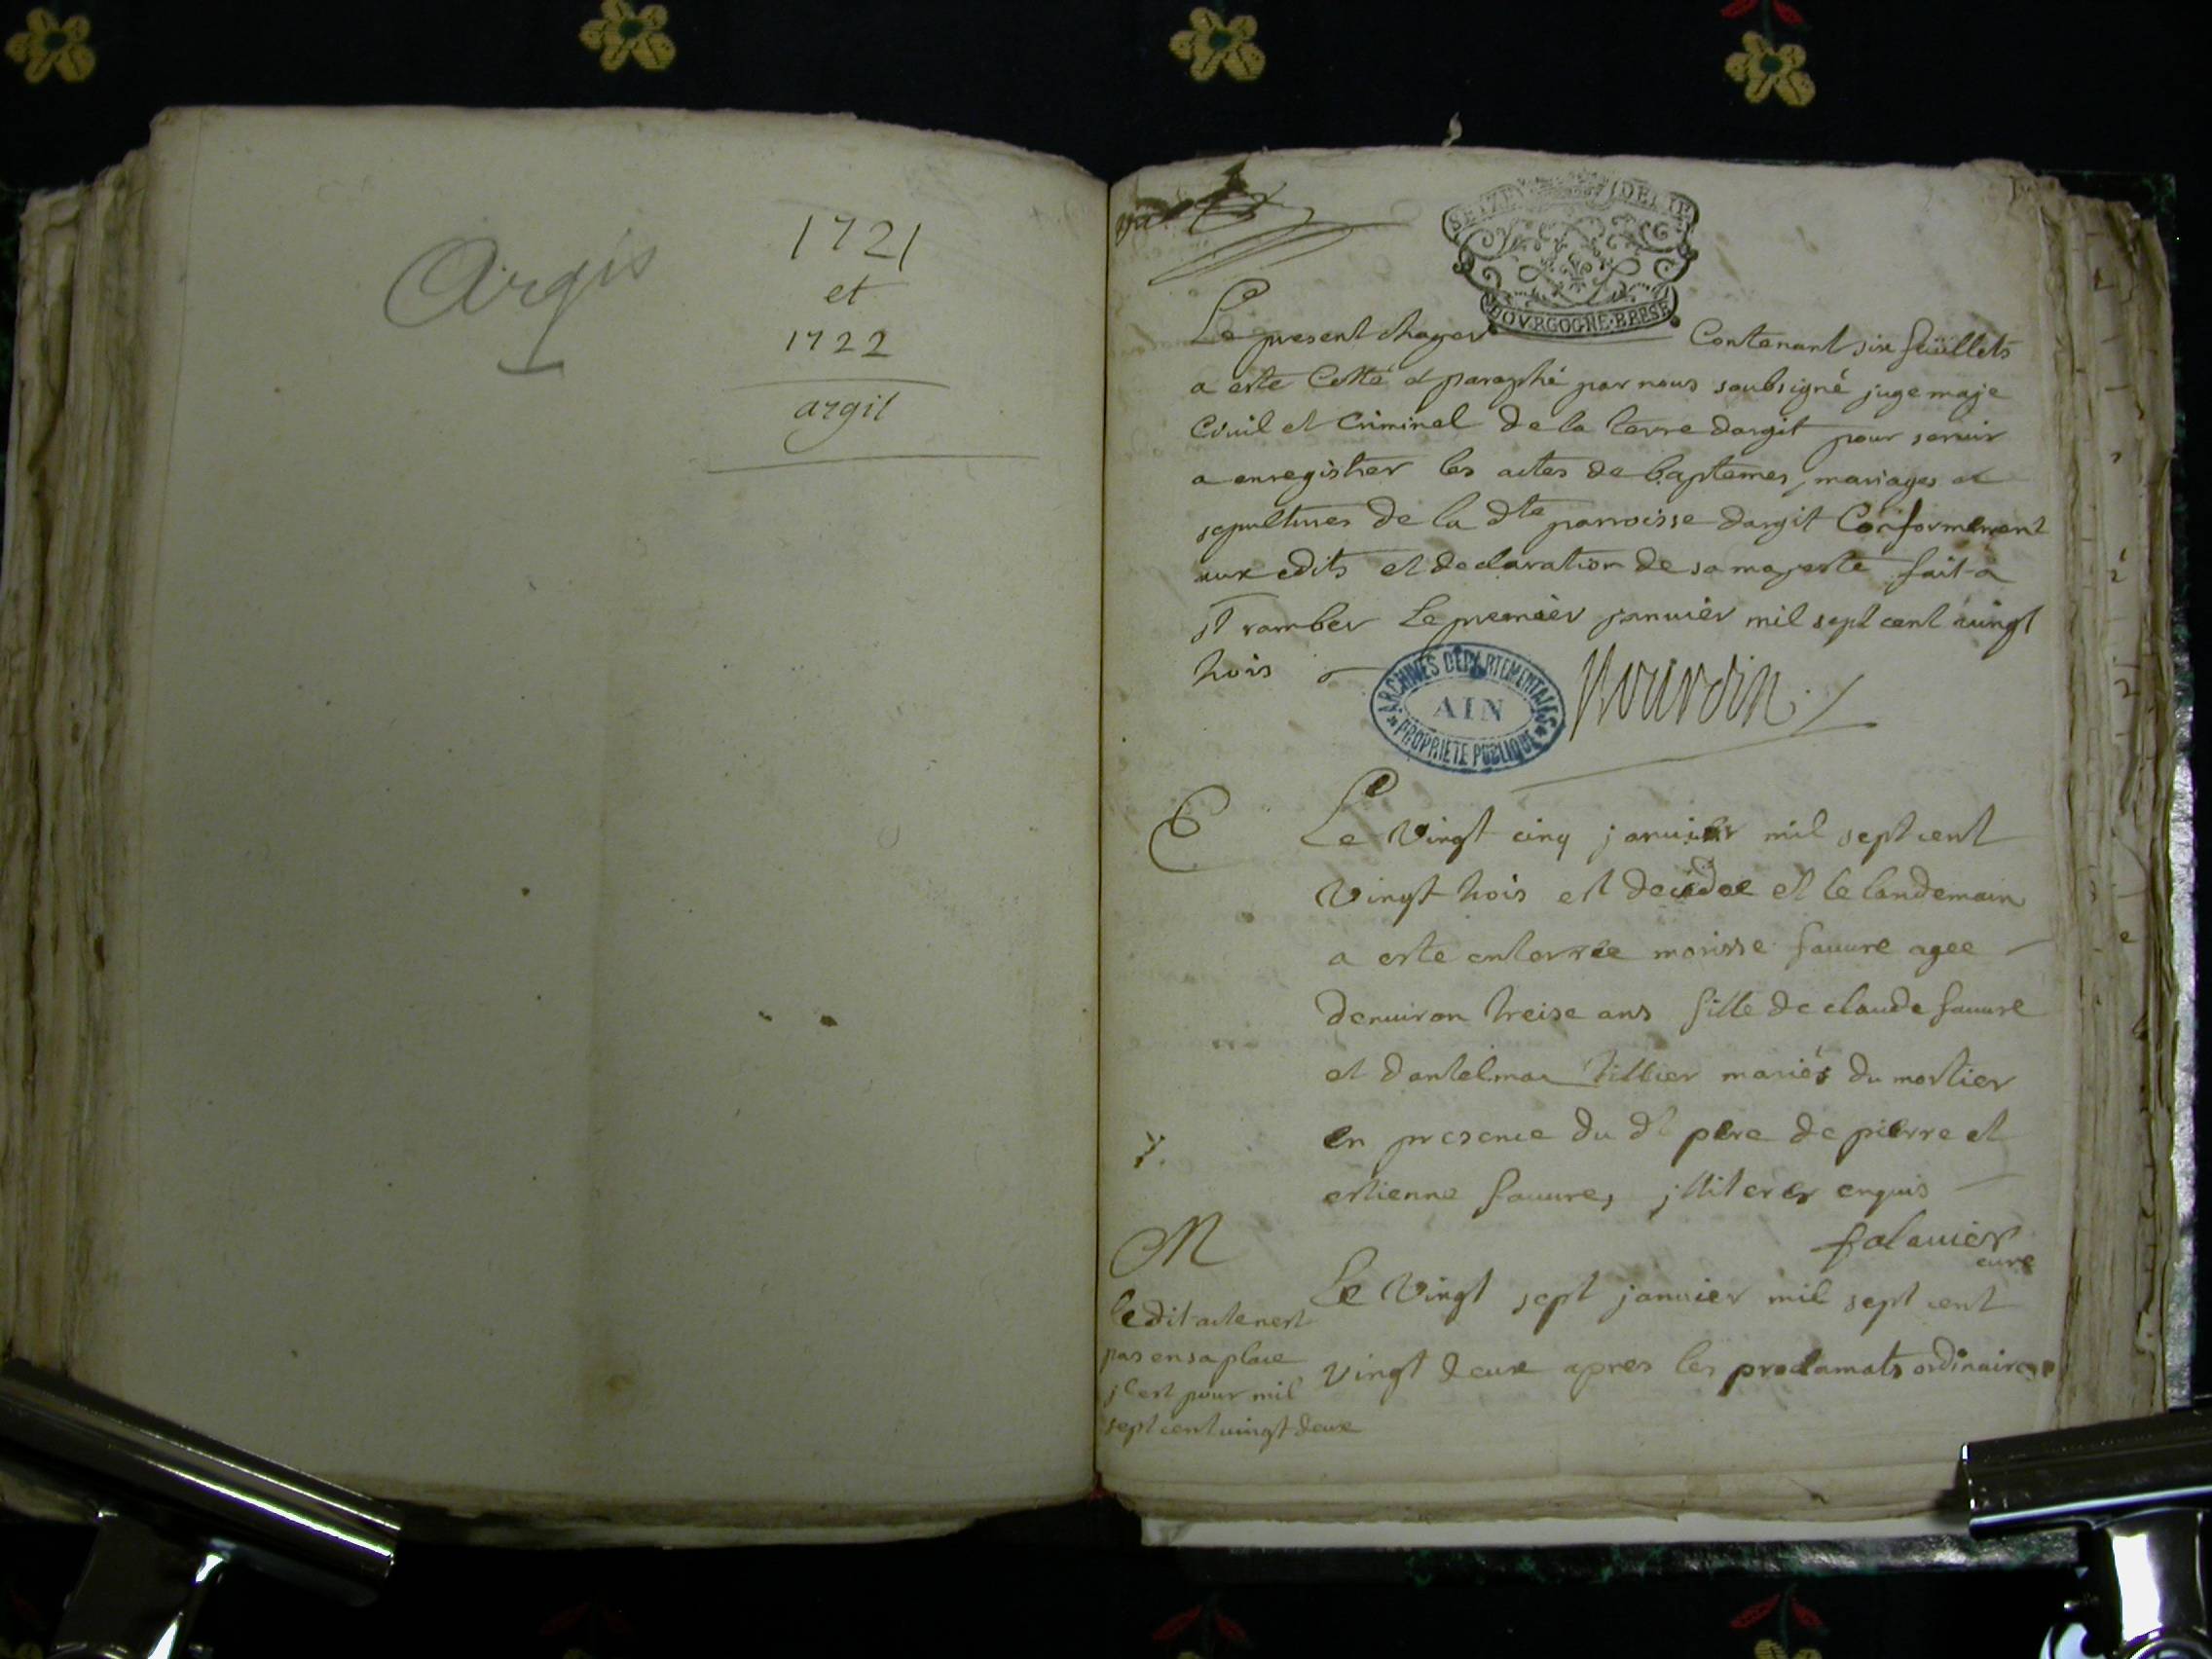 Argis
1721
et
1722
argit
SEIZE DEN IE
BOVRGOGNE·BRESE
Le present chayer Contenant six feüillets
a esté Cotté et paraphé par nous soubsigné juge maje
Ciuil et Criminel de la terre dargit pour seruir
a enregistrer les actes de baptemes, mariages et
sepultures de la dte parroisse dargit Conformement
aux edits et declaration de sa majesté fait a
st ramber Le premier januier mil sept cent vuingt
trois
ARCHIVES DÉPARTEMENTALES
AIN
PROPRIÉTÉ PUBLIQUE
E
Le Vingt cinq januier mil sept cent
Vingt trois est decedee et le landemain
a esté enterrée morisse fauure agee
denuiron treise ans fille de claude fauure
et dantelmaz tillier mariés du mortier
en presence du dt pere de pierre et
estienne fauure, jlliteres enquis
falauier
curé
M
Le Vingt sept januier mil sept cent
vingt deux apres les proclamats ordinaires
le dit acte nest
pas en sa place
jl est pour mil
sept cent vuingt deux